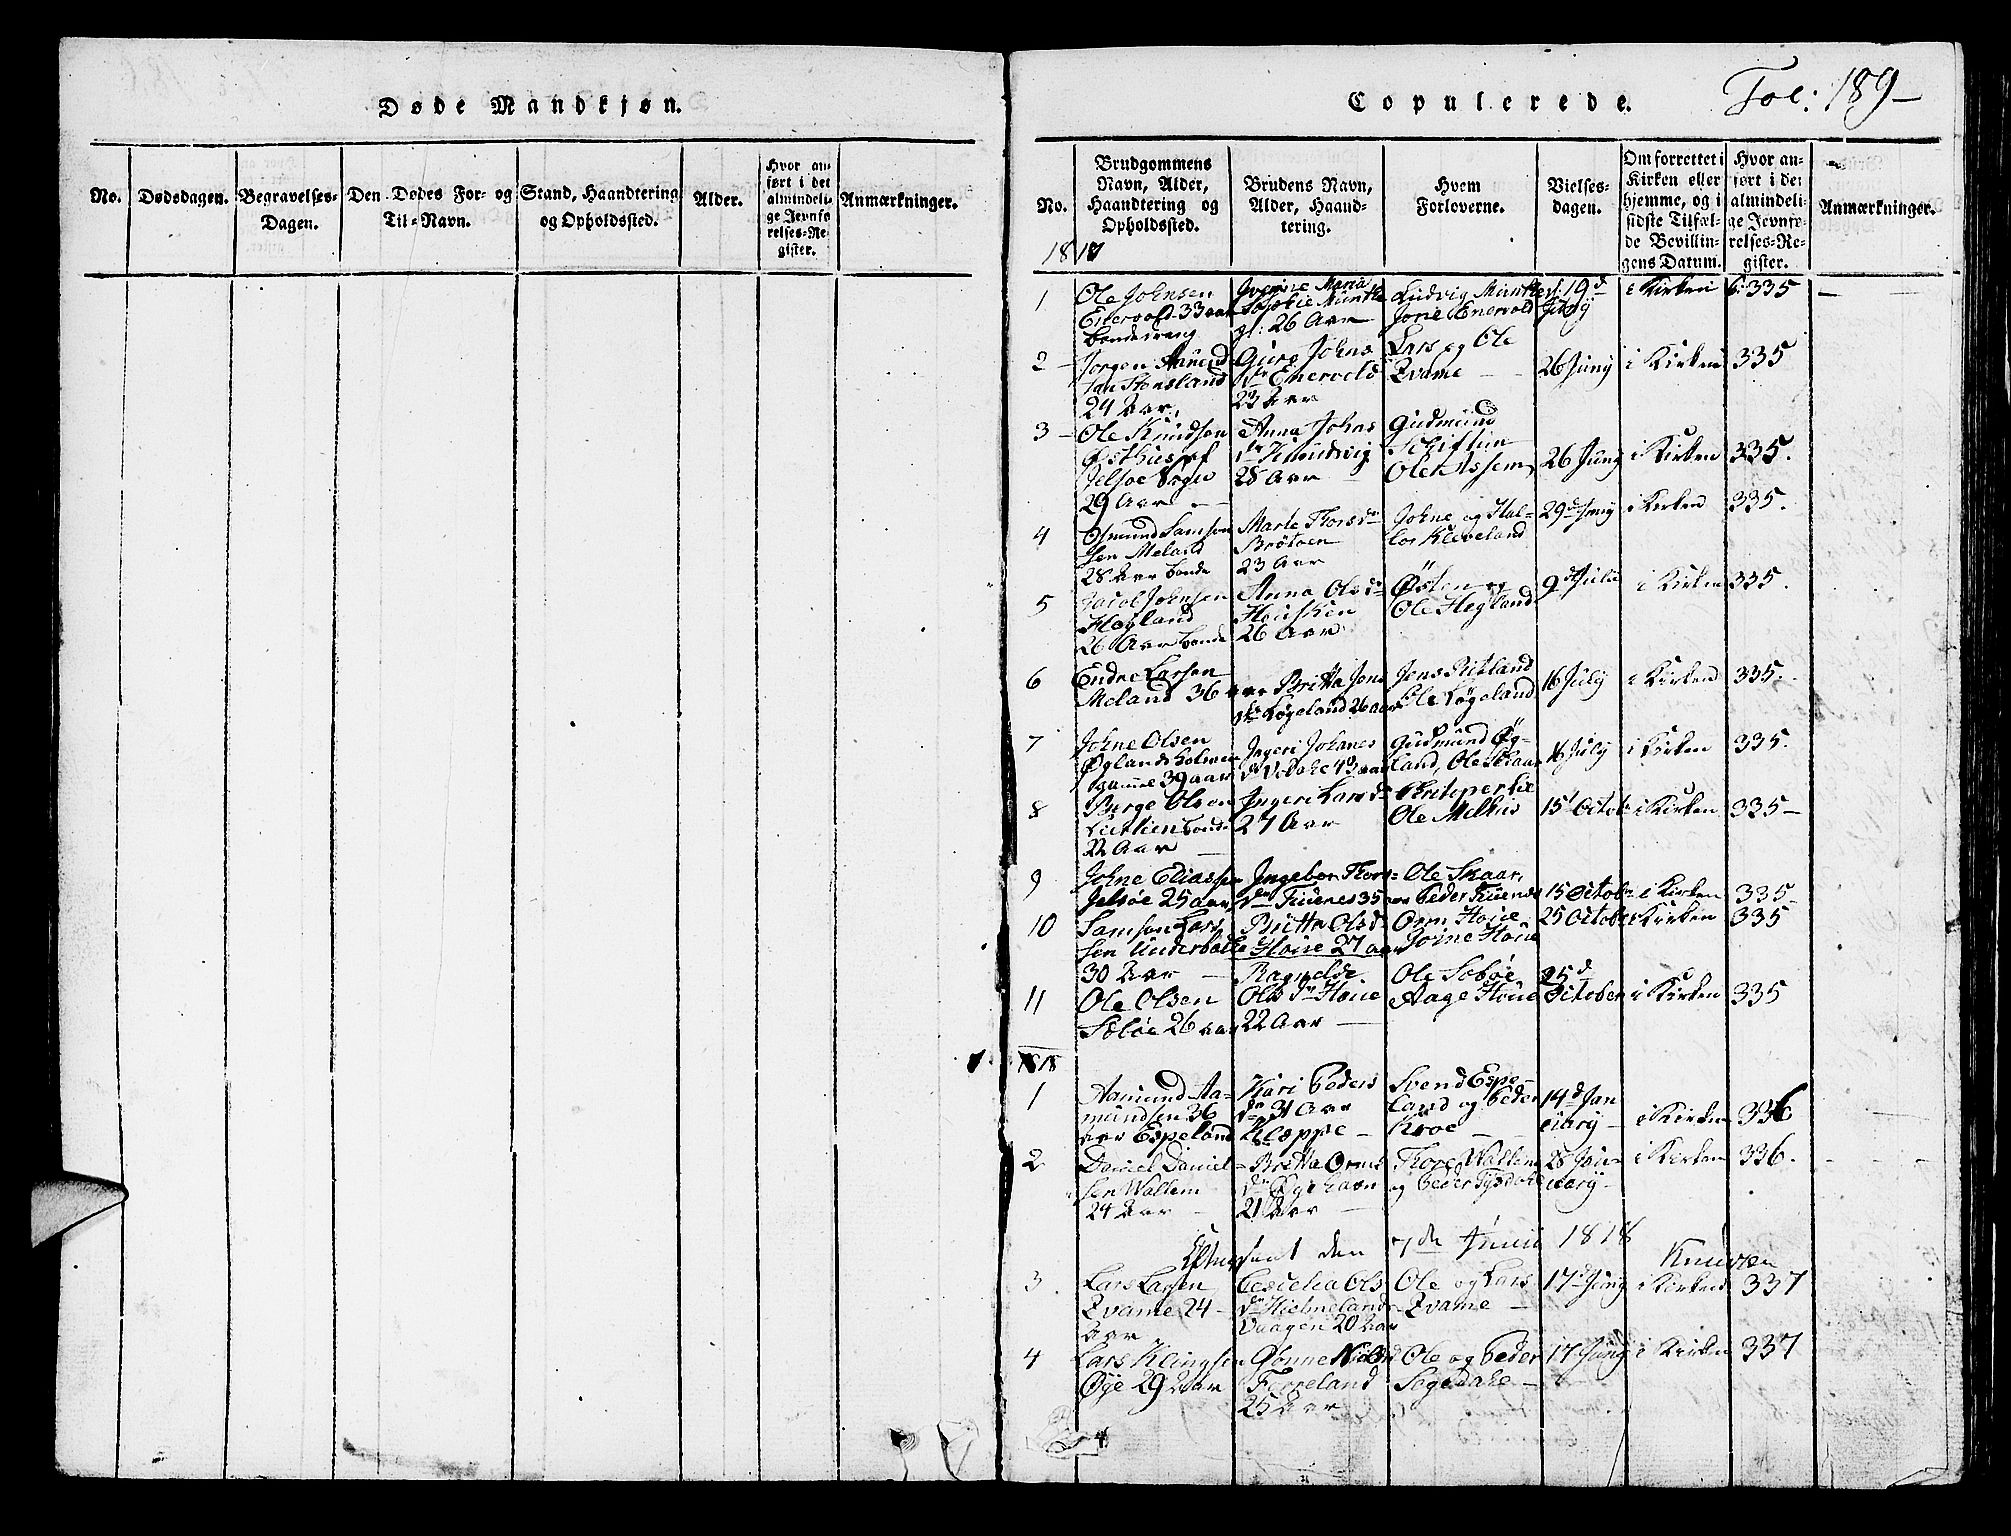 Døde Mandkjøn.
No.
Dødsdagen.
Begravelses-
Dagen.
Den Dødes For- og
Til-Navn.
Stand, Haandtering
og Opholdssted.
Alder.
Hvor an-
ført i det
almindeli-
ge Jevnfø
relses-Re-
gister.
Anmærkninger.
Copulerede.
Fol: 189-
No.
Brudgommens
Navn, Alder,
Haandtering og
Opholdssted.
Brudens Navn,
Alder, Haand-
tering.
Hvem
Forloverne.
Vielses-
dagen.
Om forrettet i
Kirken eller
hjemme, og i
sidste Tilfæl-
de Bevillin-
gens Datum.
Hvor an-
ført i det
almindeli-
ge Jevnfø-
relses-Re-
gister.
Anmærkninger.
1817
1
Ole Johnsen
Enervold 33 aar
bondedreng
Maria
Sophie Munthe
gl: 26 Aar
Ludvig Munthe
Jone Enervold
d: 19d
i Kirken
335
2
Jørgen
24 Aar
Guro Johns
dr Enervold
23 Aar
Lars og Ole
Zvame
26 Juny
i Kirken
335
3
Ole Knudsen
Østhus af
Jelsøe Sogn
29 Aar
Anna Johns
dr
28 Aar
Gudmund
Schiftun
Ole
26 Juny
i Kirken
335.
4
Osmund Samson
sen Meland
28 Aar bonde
Marte Thorsdr
23 Aar
Johne og Hal-
vor Kleveland
29d Juny
i Kirken
335.
5
Jacob Johnsen
Hegland
26 Aar bonde
Anna Olsdr
26 Aar
Østen og
Ole Hegland
9d Julii
i Kirken
335.
6
Endre Larsen
Meland 36 aar
Britta Jens
dr Løgeland 26 aar
Jens
Ole Løgeland
16 July
i Kirken
335.
7
Johne Olsen
Øglands holmen
gamel 39 aar
Ingeri Johanes
dr 43 aar
Gudmund Øg-
land, Ole Skaar
16 July
i Kirken
335.
8
Børge Olsen
bonde
22 Aar
Ingeri Larsdr
27 Aar
Ole Melhus
15 Octob
i Kirken
335-
9
Johne Eliassen
Jelsøe 25 aar
Ingebor Thors-
dr Tuenes 35 aar
Ole Skaar,
Peder Tuenes
15 Octob
i Kirken
335
10
Samson Lars
sen Underbakke
30 Aar
Britta Olsd
Houe 27 aar
Orm Houe
Joine Houe
25 October
i Kirken
335
11
Ole Olsen
Soböe 26 aar
Ragnelde
Ols dr Houe
22 Aar
Ole Soböe
Aage Houe
25d
October
i Kirken
335
1818
1
Aamund Aa-
mundsen 36
aar Espeland
Kari Peders
dr 31 Aar
Kleppe
Svend Espe-
land og Peder
Kroe
14d Jan
uary
i Kirken
336
2
Daniel Daniel-
sen Wallem
24 Aar
Britta Orms
dr Øyehavn
21 Aar
Thore Wallem
og Peder Tysdahl
28 Jan-
uary
i Kirken
336.
Efterseet den 7de Junii 1818
Knudzen
3
Lars Larsen
Zvame 24
Aar
Cecielia Ols
dr Hielmelands
Vaagen 20 aar
Ole og Lars
Zvame
17d Juny
i Kirken
337
4
Lars Klingsen
Øye 29 Aar
Gønne
Førreland
25 Aar
Ole og Peder
17 Juny
i Kirken
337